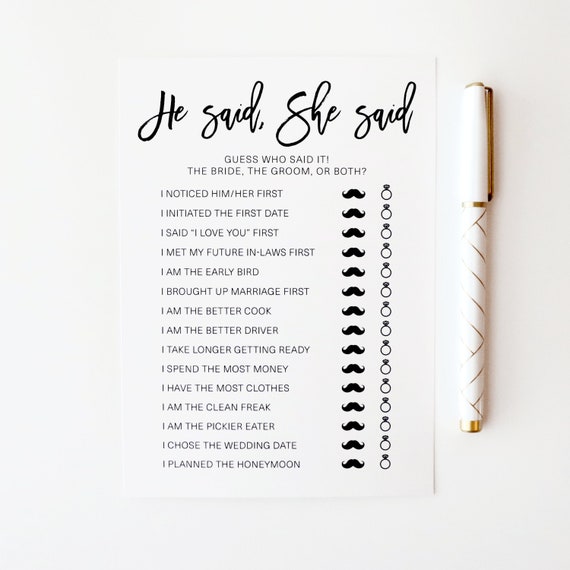 He said, She said
GUESS WHO SAID IT!
THE BRIDE, THE GROOM, OR BOTH?
I NOTICED HIM/HER FIRST
I INITIATED THE FIRST DATE
I SAID “I LOVE YOU” FIRST
I MET MY FUTURE IN-LAWS FIRST
I AM THE EARLY BIRD
I BROUGHT UP MARRIAGE FIRST
I AM THE BETTER COOK
I AM THE BETTER DRIVER
I TAKE LONGER GETTING READY
I SPEND THE MOST MONEY
I HAVE THE MOST CLOTHES
I AM THE CLEAN FREAK
I AM THE PICKIER EATER
I CHOSE THE WEDDING DATE
I PLANNED THE HONEYMOON